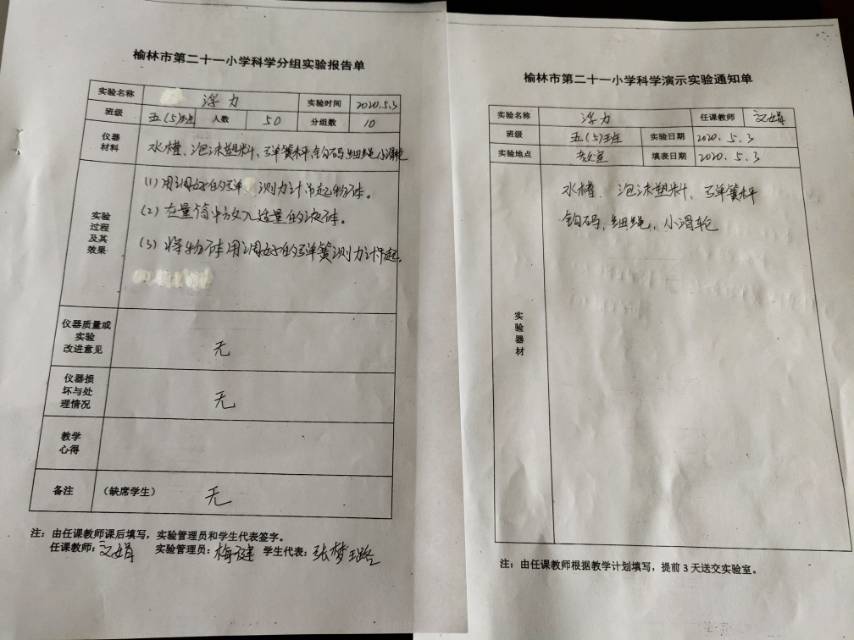 榆林市第二十一小学科学分组实验报告单
实验名称 浮力 实验时间 2020.5.3
班级 五(5)班 人数 50 分组数 10
仪器材料 水槽、泡沫塑料、弹簧秤、钩码、细绳、小滑轮
实验过程及其效果
(1) 用调好的弹 测力计吊起物体。
(2) 在量筒中放入适量的液体。
(3) 将物体用调好的弹簧测力计吊起
仪器质量或实验改进意见 无
仪器损坏与处理情况 无
教学心得
备注 (缺席学生) 无
注：由任课教师课后填写，实验管理员和学生代表签字。
任课教师： 实验管理员： 学生代表：张梦璐
榆林市第二十一小学科学演示实验通知单
实验名称 浮力 任课教师
班级 五(5)班 实验日期 2020.5.3
实验地点 教室 填表日期 2020.5.3
实验器材
水槽、泡沫塑料、弹簧秤
钩码、细绳、小滑轮
注：由任课教师根据教学计划填写，提前 3 天送交实验室。